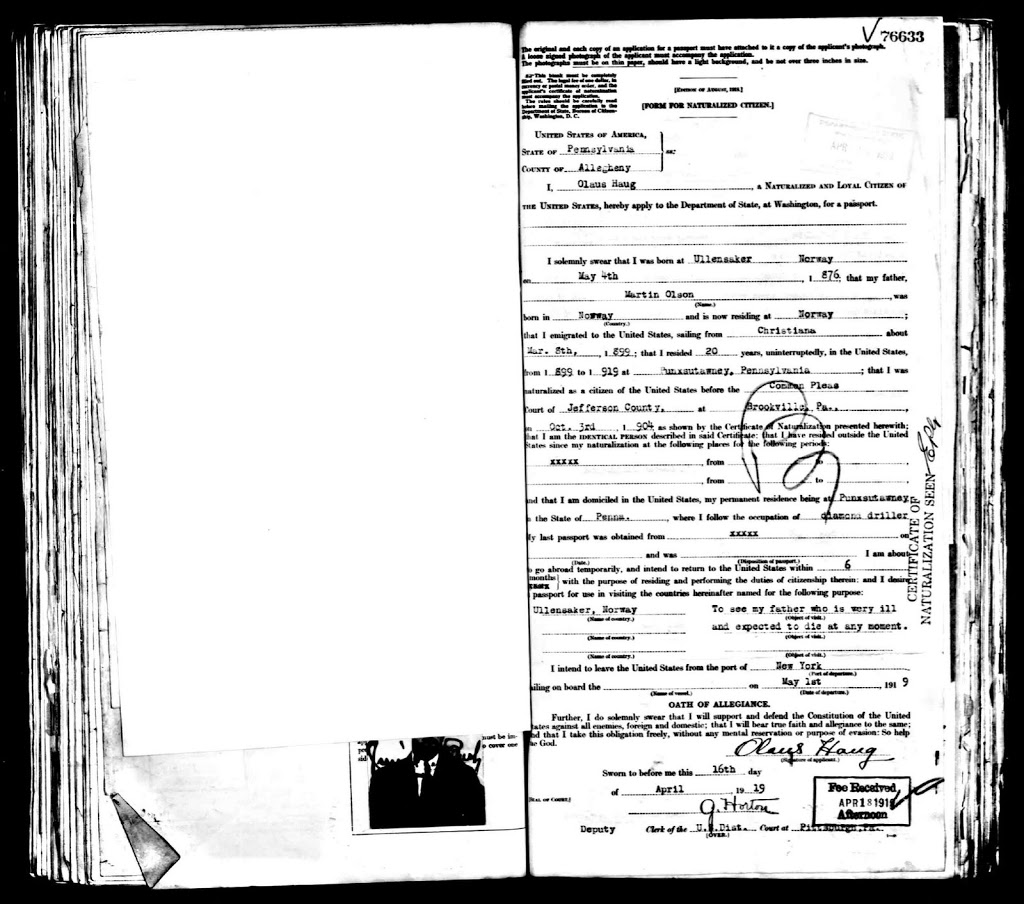 √ 76633
The original and each copy of an application for a passport must have attached to it a copy of the applicant's photograph.
A loose signed photograph of the applicant must accompany the application.
The photographs must be on thin paper, should have a light background, and be not over three inches in size.
This blank must be completely
filled out. The legal fee of one dollar, in
currency or postal money order, and the
applicant's certificate of naturalization
must accompany the application.
The rules should be carefully read
before mailing the application to the
Department of State, Bureau of Citizen-
ship, Washington, D. C.
[EDITION OF AUGUST, 1918.]
[FORM FOR NATURALIZED CITIZEN.]
UNITED STATES OF AMERICA,
STATE OF Pennsylvania
ss:
COUNTY OF Allegheny
I, Olaus Haug, a NATURALIZED AND LOYAL CITIZEN OF
THE UNITED STATES, hereby apply to the Department of State, at Washington, for a passport.
I solemnly swear that I was born at Ullensaker Norway
on May 4th, 1 876, that my father,
Martin Olson, was
(Name.)
born in Norway and is now residing at Norway;
(Country.)
that I emigrated to the United States, sailing from Christiana about
Mar. 8th, 1 899; that I resided 20 years, uninterruptedly, in the United States,
from 1 899 to 1 919 at Punxsutawney, Pennsylvania; that I was
naturalized as a citizen of the United States before the Common Pleas
Court of Jefferson County, at Brookville, Pa.,
Oct. 3rd, 1 904 as shown by the Certificate of Naturalization presented herewith;
that I am the IDENTICAL PERSON described in said Certificate; that I have resided outside the United
States since my naturalization at the following places for the following periods:
xxxxx, from to
, from to
and that I am domiciled in the United States, my permanent residence being at Punxsutawney
the State of Penna., where I follow the occupation of diamond driller
My last passport was obtained from xxxxx on
and was I am about
(Date.) (Disposition of passport.)
go abroad temporarily, and intend to return to the United States within 6
months with the purpose of residing and performing the duties of citizenship therein: and I desire
passport for use in visiting the countries hereinafter named for the following purpose:
Ullensaker, Norway To see my father who is very ill
(Name of country.) (Object of visit.)
and expected to die at any moment.
(Name of country.) (Object of visit.)
(Name of country.) (Object of visit.)
I intend to leave the United States from the port of New York
(Port of departure.)
sailing on board the on May 1st, 191 9
(Name of vessel.) (Date of departure.)
OATH OF ALLEGIANCE.
Further, I do solemnly swear that I will support and defend the Constitution of the United
States against all enemies, foreign and domestic; that I will bear true faith and allegiance to the same;
and that I take this obligation freely, without any mental reservation or purpose of evasion: So help
me God.
Olaus Haug
(Signature of applicant.)
Sworn to before me this 16th day
of April 19 19
[SEAL OF COURT.]
J. Horton
Deputy Clerk of the U.S. Dist. Court at Pittsburgh, Pa.
[OVER.]
Fee Received
APR 18 1919
Afternoon
CERTIFICATE OF
NATURALIZATION SEEN
must be im-
cover one